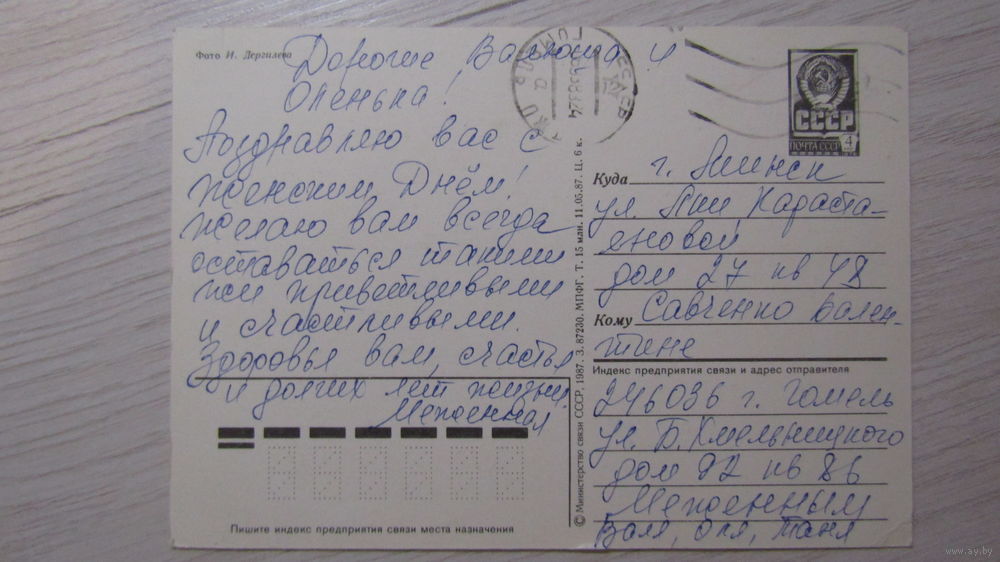 Фото И. Дергилева
Дорогие Валюша и
Оленька!
Поздравляю вас с
женским Днём!
желаю вам всегда
оставаться такими
же приветливыми
и счастливыми.
Здоровья вам, счастья
и долгих лет жизни
СССР
ПОЧТА СССР
4
Куда г. Минск
ул.
дом 27 кв 48
Кому Савченко Вален-
тине
Индекс предприятия связи и адрес отправителя
246036 г. Гомель
ул. Б. Хмельницкого
дом 92 кв 86
Валя, Оля, Таня
Пишите индекс предприятия связи места назначения
© Министерство связи СССР, 1987. З. 87230. МПФГ. Т. 15 млн. 11.05.87. Ц. 6 к.
www.ay.by